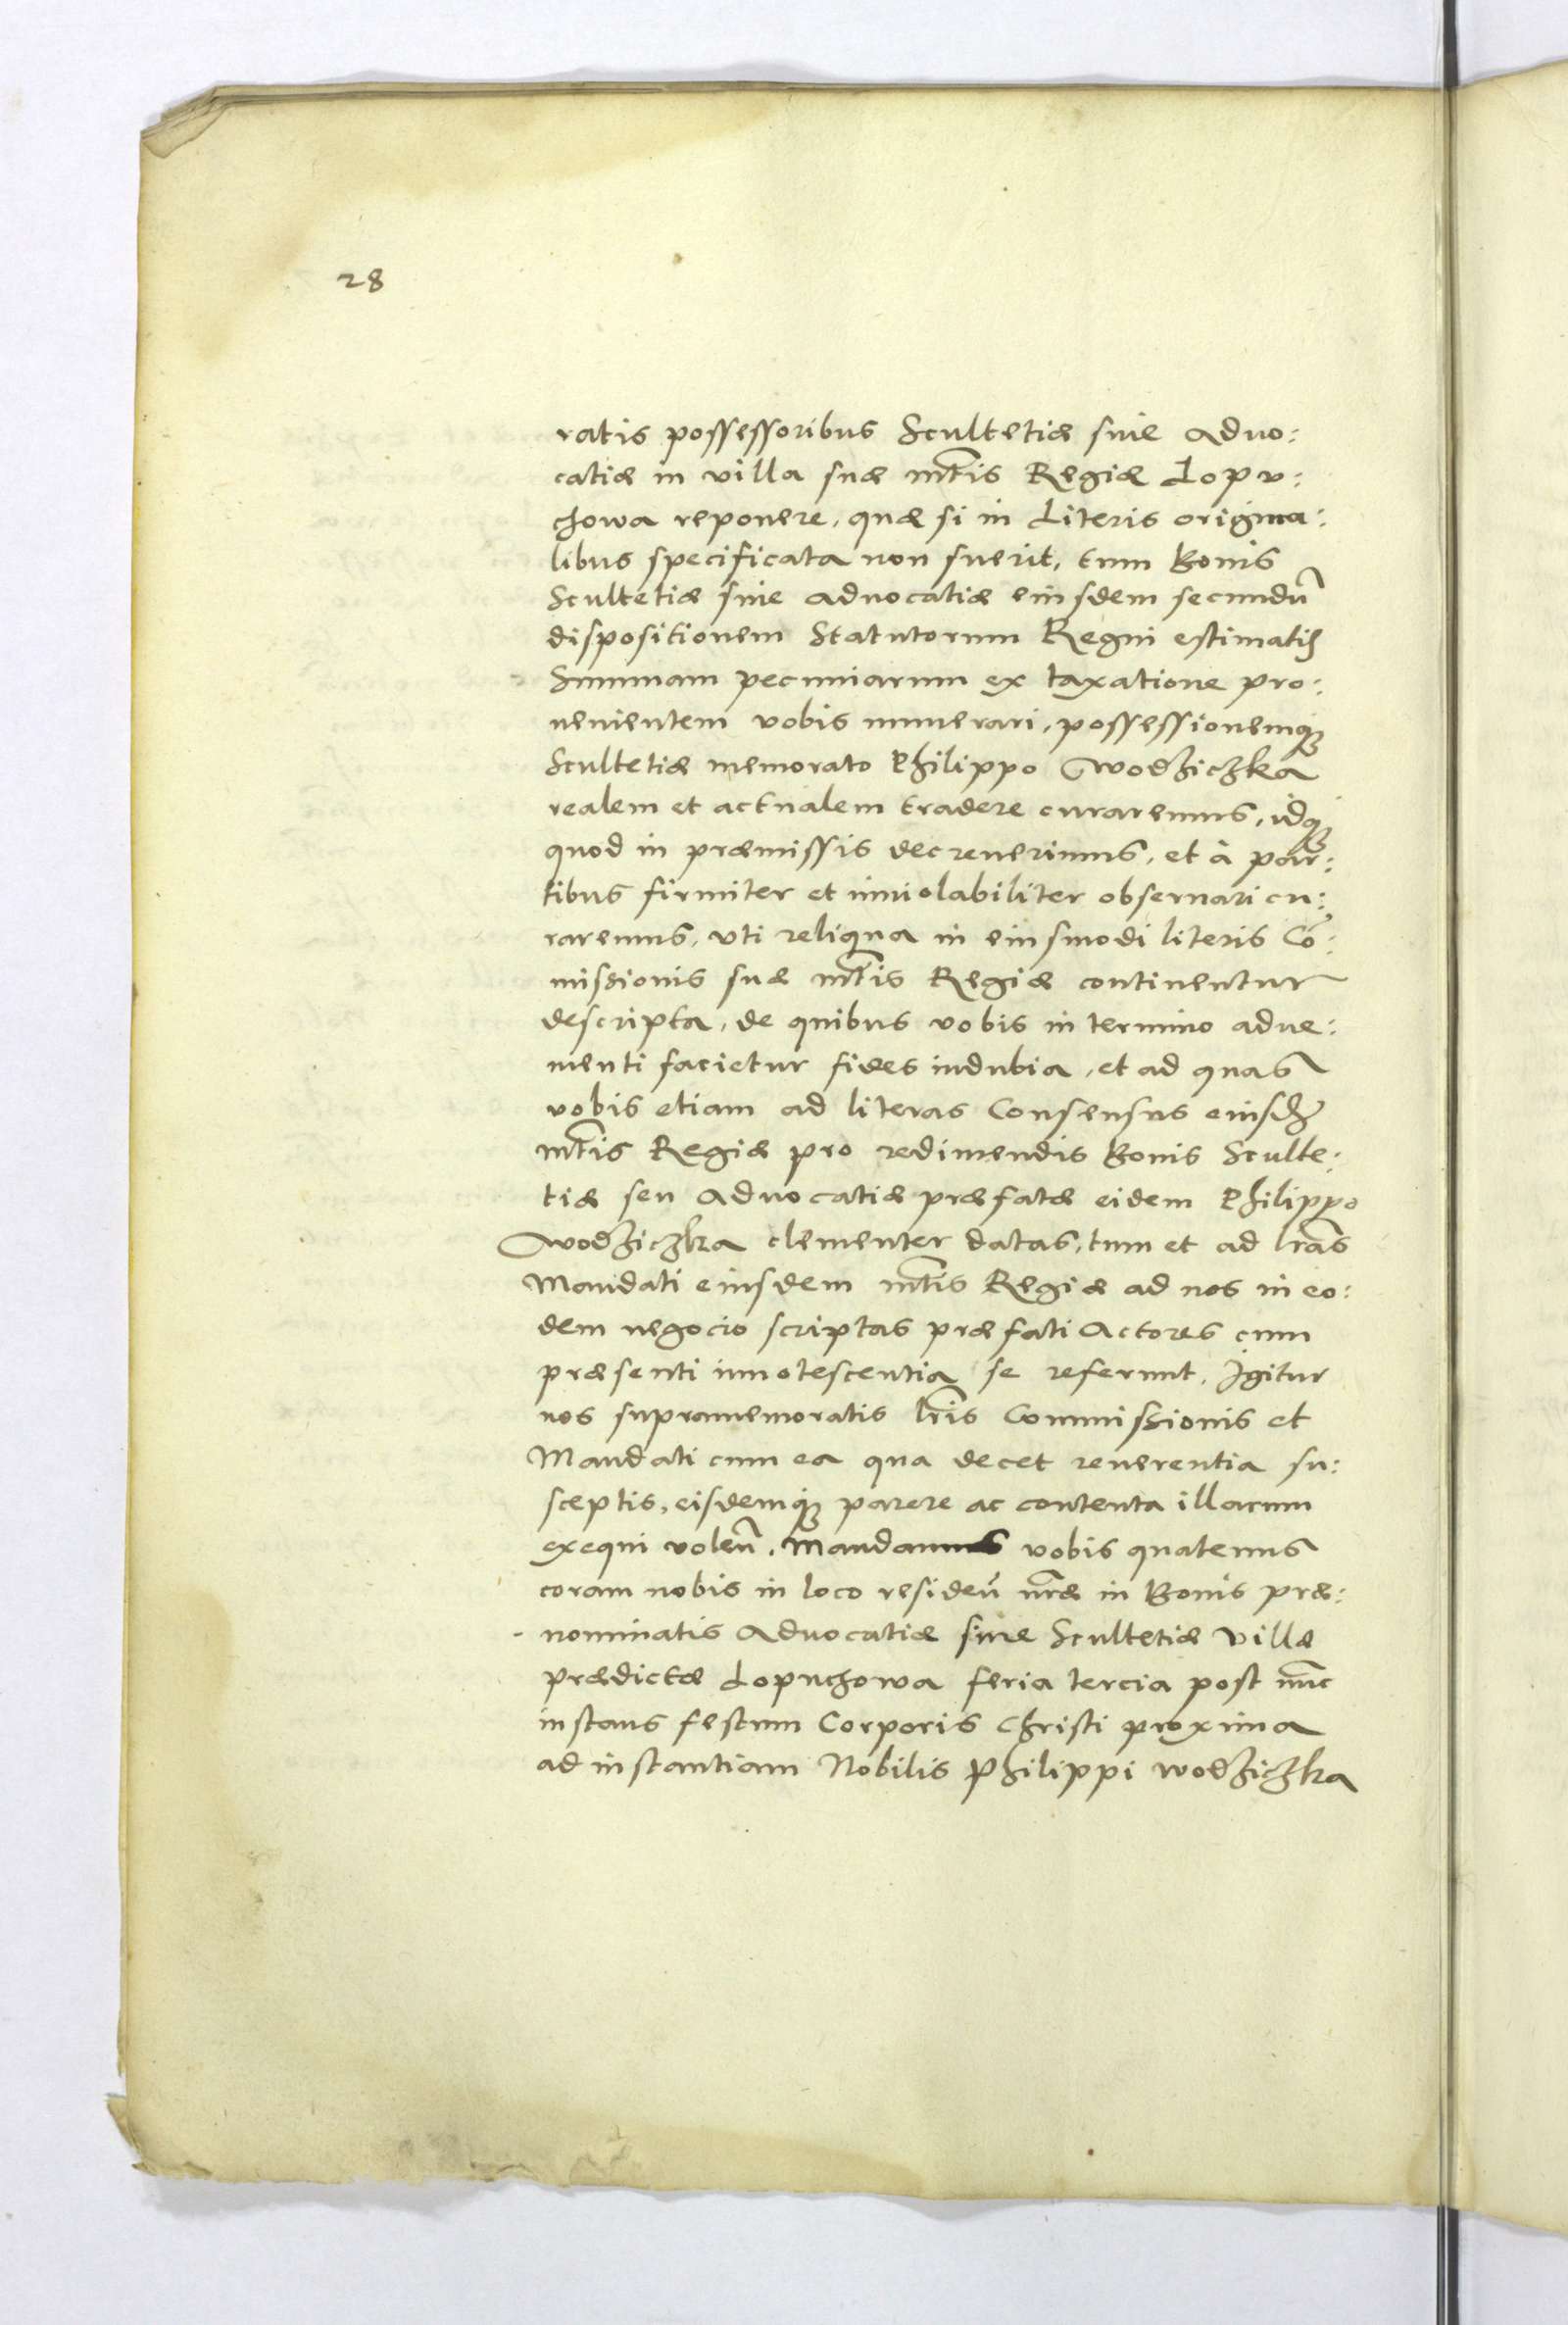 28
ratis possessoribus Scultetiæ siue Aduo:
catiæ in villa suæ Mtis Regiæ Lopu:
chowa reponere, quæ si in Literis origina:
libus specificata non fuerit, tum Bonis
Scultetiæ siue Aduocatiæ eiusdem secundũ
dispositionem Statutorum Regni estimatis
Summam pecuniarum ex taxatione pro:
uenientem vobis numerari, possessionemq́ꝫ
Scultetiæ memorato Philippo Wodziczka
realem et actualem tradere curaremus, idq́ꝫ
quod in præmissis decreuerimus, et à par:
tibus firmiter et inuiolabiliter obseruari cu:
raremus, vti reliqua in eiusmodi literis Cõ:
missionis suæ Mtis Regiæ continentur
descripta, de quibus vobis in termino adue:
nienti facietur fides indubia, et ad quas
vobis etiam ad literas Consensus eiusdꝫ
Mtis Regiæ pro redimendis Bonis Sculte:
tiæ seu Aduocatiæ præfatæ eidem Philippo
Wodziczka clementer datas, tum et ad lras
Mandati eiusdem Mtis Regiæ ad nos in eo:
dem negocio scriptas præfati Actores cum
præsenti innotescentia se referunt. Igitur
nos supramemoratis lris Commissionis et
Mandati cum ea qua decet reuerentia su:
sceptis, eisdemq́ꝫ parere ac contenta illarum
exequi volen̄. Mandamus vobis quatenus
coram nobis in loco residen̄ nræ in Bonis præ:
nominatis Aduocatiæ siue Scultetiæ Villæ
prædictæ Lopuchowa feria tercia post nunc
instans festum Corporis Christi proxima
ad instantiam Nobilis Philippi Wodziczka